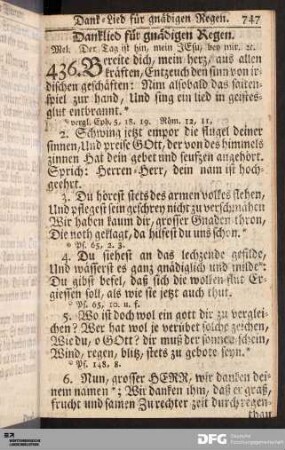 Dank-Lied für gnädigen Regen. 747
Danklied für gnädigen Regen.
Mel. Der Tag ist hin, mein JEsu, bey mir. ꝛc.
436. Bereite dich, mein herz, aus allen
kräften, Entzeuch den sinn von ir-
dischen geschäften: Nim alsobald das saiten-
spiel zur hand, Und sing ein lied in geistes-
glut entbrannt. *
* vergl. Eph. 5, 18. 19. Röm. 12, 11.
2. Schwing jetzt empor die flügel deiner
sinnen, Und preise GOtt, der von des himmels
zinnen Hat dein gebet und seufzen angehört.
Sprich: Herren-Herr, dein nam ist hoch-
geehrt.
3. Du hörest stets des armen volkes flehen,
Und pflegest sein geschrey nicht zu verschmähen
Wir haben kaum dir, grosser Gnaden-thron,
Die noth geklagt, da hilfest du uns schon. *
* Ps. 65, 2. 3.
4. Du siehest an das lechzende gefilde,
Und wässerst es ganz gnädiglich und milde*:
Du gibst befel, daß sich die wolken-flut Er-
giessen soll, als wie sie jetzt auch thut.
* Ps. 65, 10. u. f.
5. Wo ist doch wol ein gott dir zu verglei-
chen? Wer hat wol je verübet solche zeichen,
Wie du, o GOtt? dir muß der sonnen-schein,
Wind, regen, blitz, stets zu gebote seyn. *
* Ps. 148, 8.
6. Nun, grosser HERR, wir danken dei-
nem namen *; Wir danken ihm, daß er graß,
frucht und samen Zu rechter zeit durch regen-
thau
DFG Deutsche
Forschungsgemeinschaft